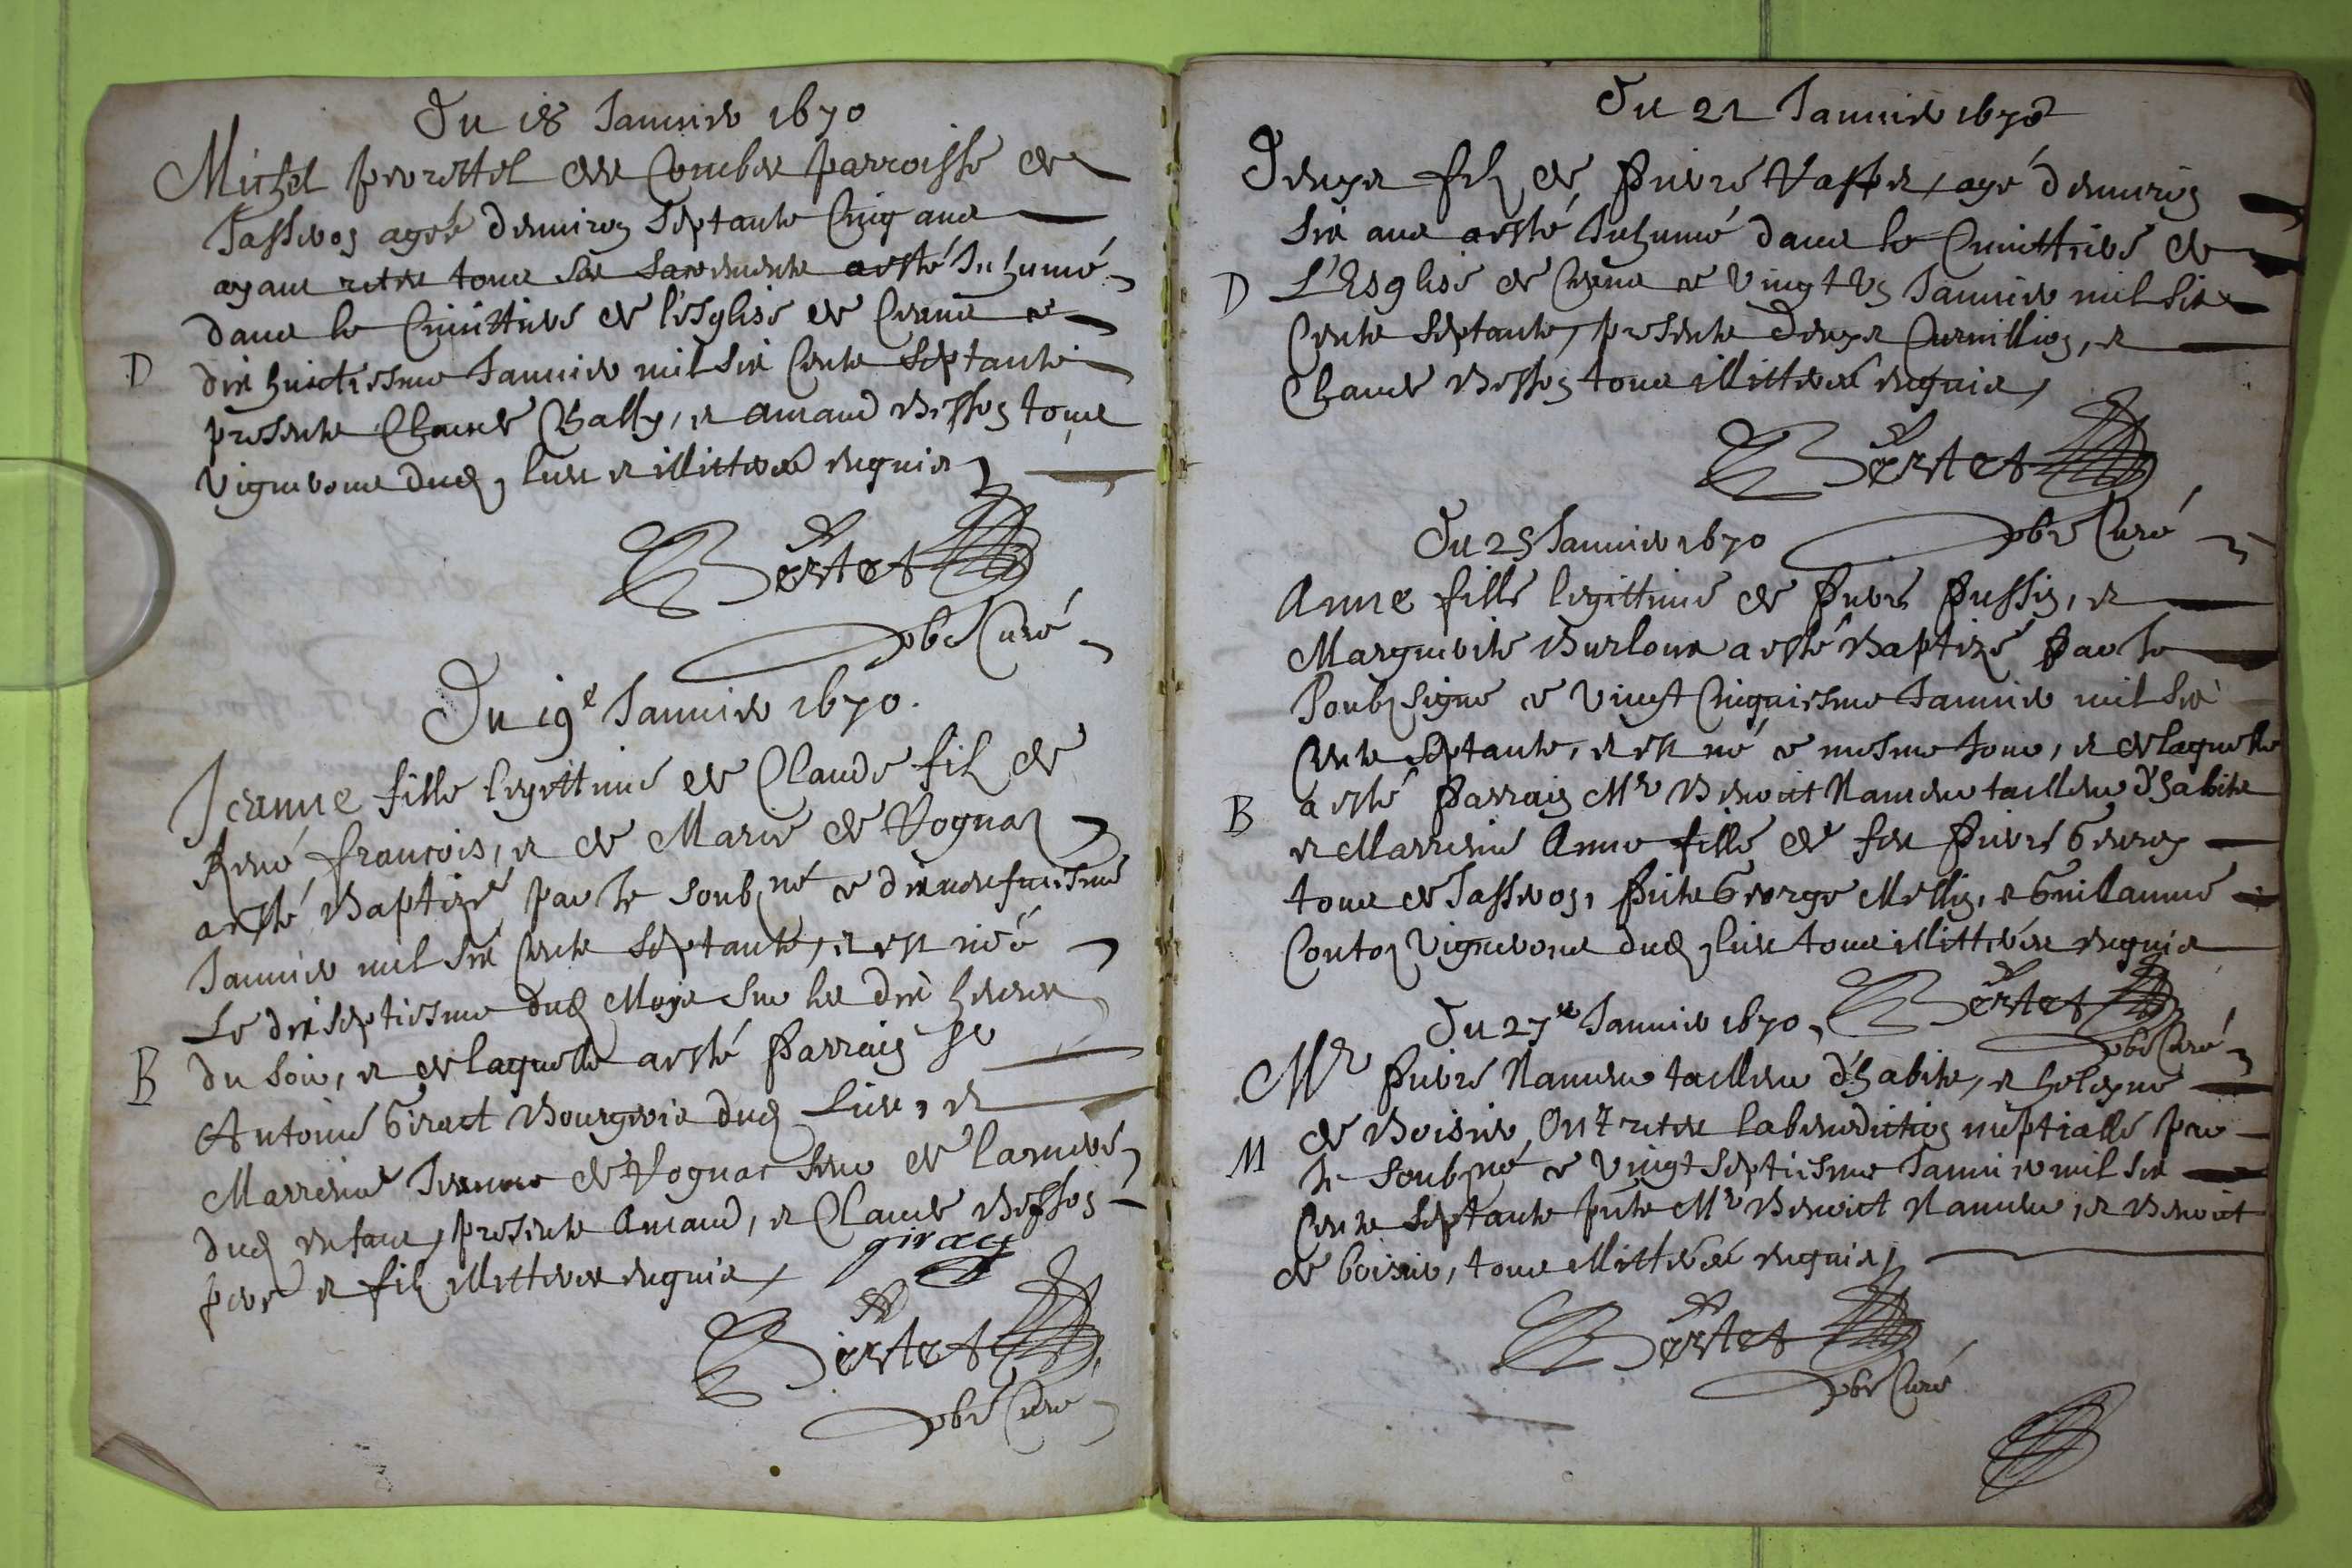 Du 18 Januier 1670
Michel perrettel de Combe parroisse de
Tasseos agée denuiron septante Cinq ans
ayant receu tous ses sacrements a esté Inhumé
dans le Cimittiere de l'esglise de Crane ce
D dix huictiesme Januier mil six Cents septante
presents Claude Bally, et amand Besson tous
vignerons dud. lieu et illitterés enquis
Bertet
pbre Curé
Du 19e Januier 1670.
Jeanne fille legittime de Claude fils de
René francois, et de Marie de Vognaz
a esté Baptizé par le soubzné ce dixneufuiesme
Januier mil six Cents septante, et est née
Le dix septiesme dud. Moys sur les dix heures
B du soir, et de laquelle a esté Parrain sr
Antoine Giract Bourgeois dud. Lieu, et
Marreine Jeanne de Vognaz de la mere
dud. enfant, presents Amand, et Claude Besson
pere et fils illitteres enquis
giracy
Bertet
pbre Curé
Du 21 Januier 1670
fils de Pierre Vasse, agé denuiron
six ans a esté Inhumé dans le Cimittiere de
D L'Esglise de Crane ce vingt vn Januier mil six
Cents septante, presents Curnillion, et
Claude Besson tous illitterés enquis
Bertet
pbre Curé
Du 25 Januier 1670
Anne fille legittime de Pierre Pussin, et
Marguerite Burloux a esté Baptizé Par le
soubzsigné ce vingt Cinquiesme Januier mil six
Cents septante, et est né ce mesme Jour, et de laquelle
B a esté Parrain Mr Benoict Nanieu tailleur d'habits
et Marreine Anne fille de feu Pierre
tous de Tasseos, Pnts George Mellin, et Guillaume
Contoz vignerons dud. lieu tous illitterés enquis
Bertet
pbre Curé
Du 27e Januier 1670
Mr Pierre Nanieu tailleur d'habits, et
de Boisie, Ont receu la benediction nuptialle par
M le soubzné ce vingt septiesme Januier mil six
Cents septante Pnts Mr Benoict Nanieu, et Benoict
de boisie, tous illitterés enquis
Bertet
pbre Curé